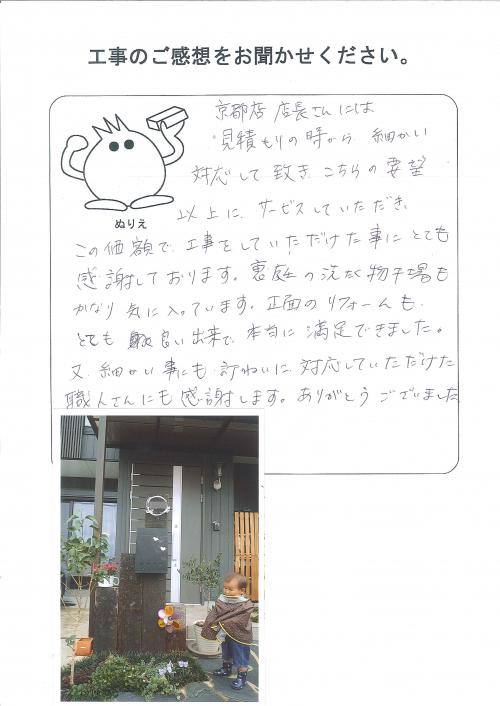 工事のご感想をお聞かせください。
ぬりえ
京都店 店長さんには
見積もりの時から 細かい
対応して 致き こちらの 要望
以上に、サービスしていただき、
この価額で、工事をしていただけた事に とても
感謝しております。裏庭の 洗たく物干場も
かなり 気に入っています。正面のリフォームも、
とても 良い出来で 本当に 満足できました。
又 細かい 事にも ていねいに 対応していただけた
職人さんにも 感謝します。ありがとうございました